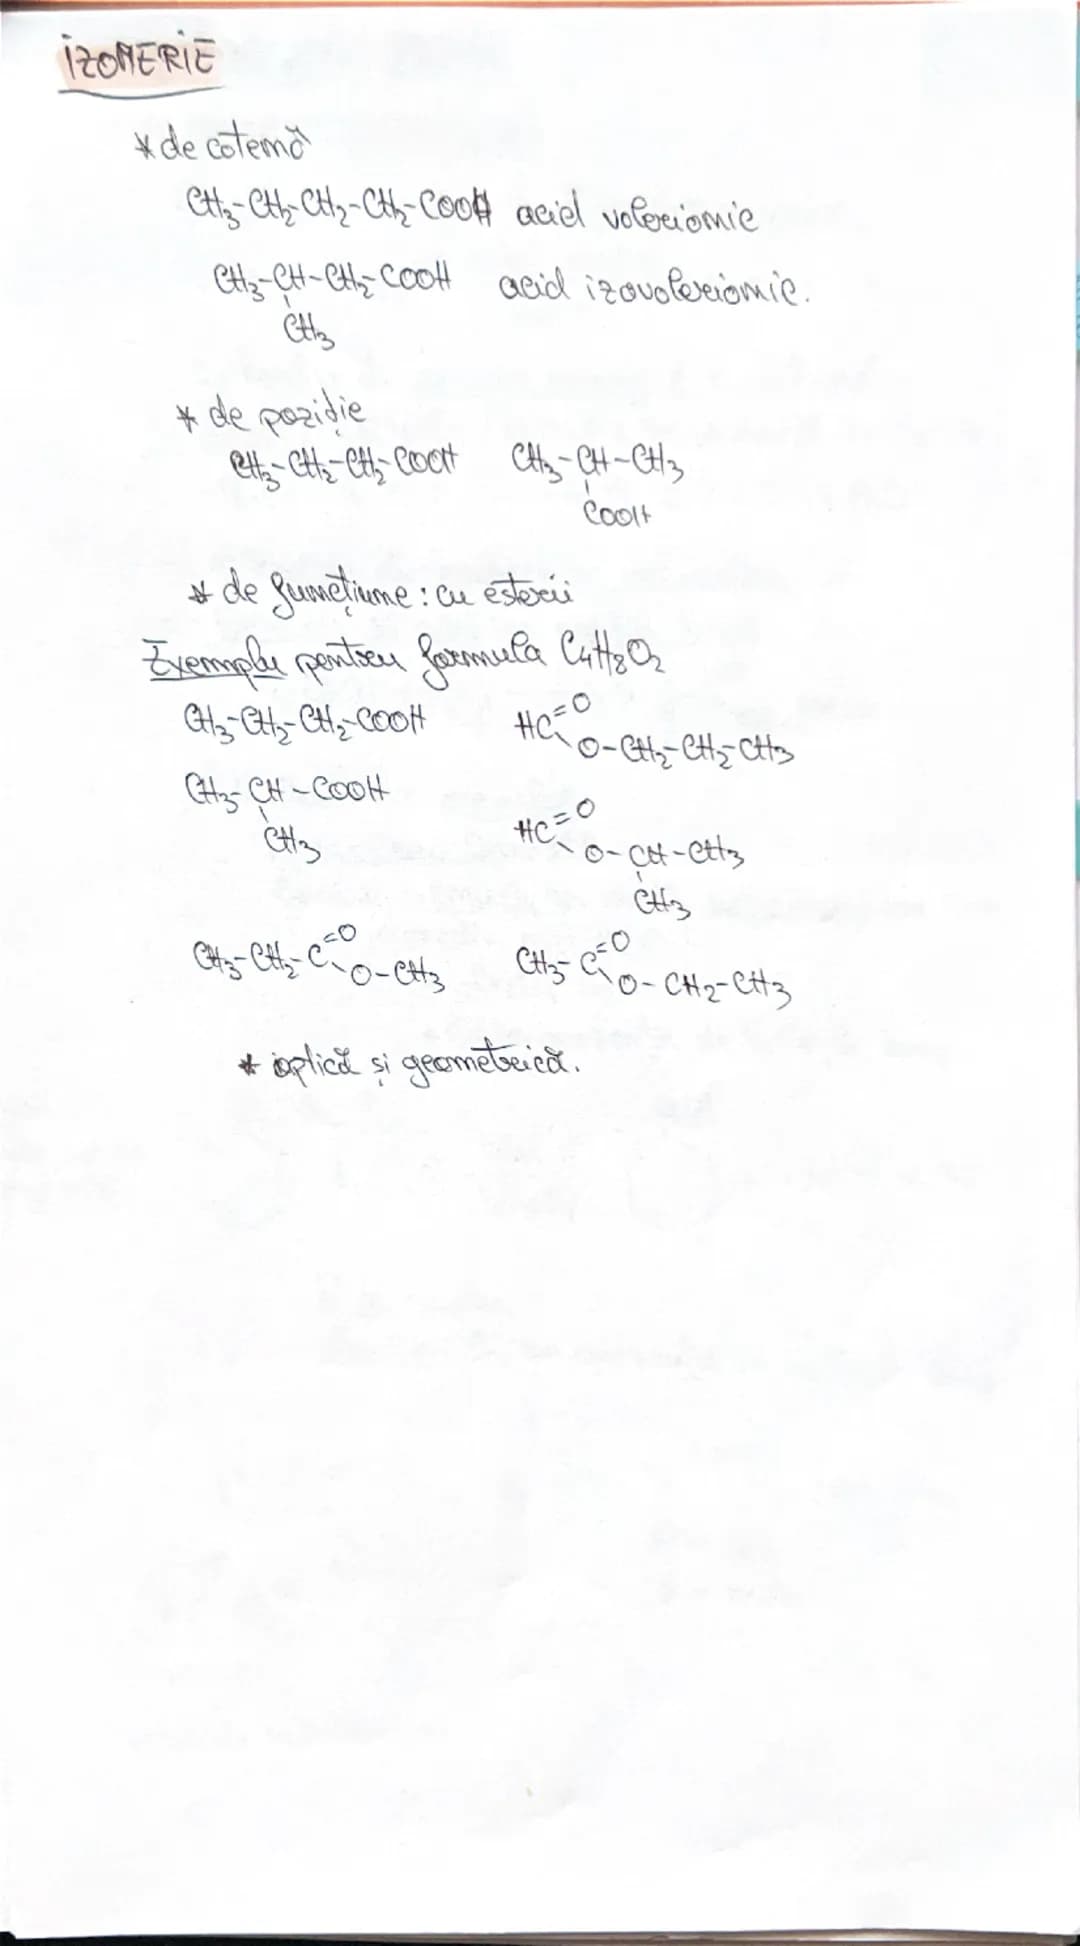 IZOMERIE
* de catenă
CH3-CH2-CH2-CH2-COOH acid valerianic
CH3-CH-CH2-COOH acid izovalerianic.
CH3
* de poziție
CH3-CH2-CH2-COOH CH3-CH-CH3
COOH
* de funcțiune: cu esterii
Exemplu pentru formula C4H8O2
CH3-CH2-CH2-COOH HC=O
O-CH2-CH2-CH3
CH3-CH-COOH
CH3
HC=O
O-CH-CH3
CH3
CH3-CH2-C=O
O-CH3
CH3-C=O
O-CH2-CH3
* optică și geometrică.